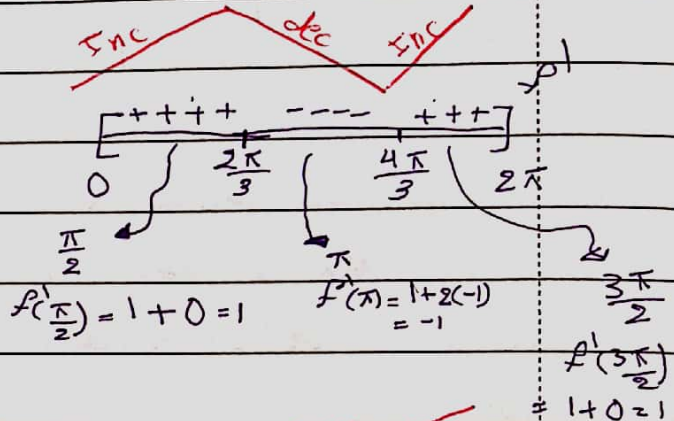 Inc dec Inc
f'
[ + + + + - - - - + + + ]
0 2π/3 4π/3 2π
π/2 π 3π/2
f'(π/2) = 1 + 0 = 1 f'(π) = 1+2(-1)
= -1
f'(3π/2)
= 1+0=1